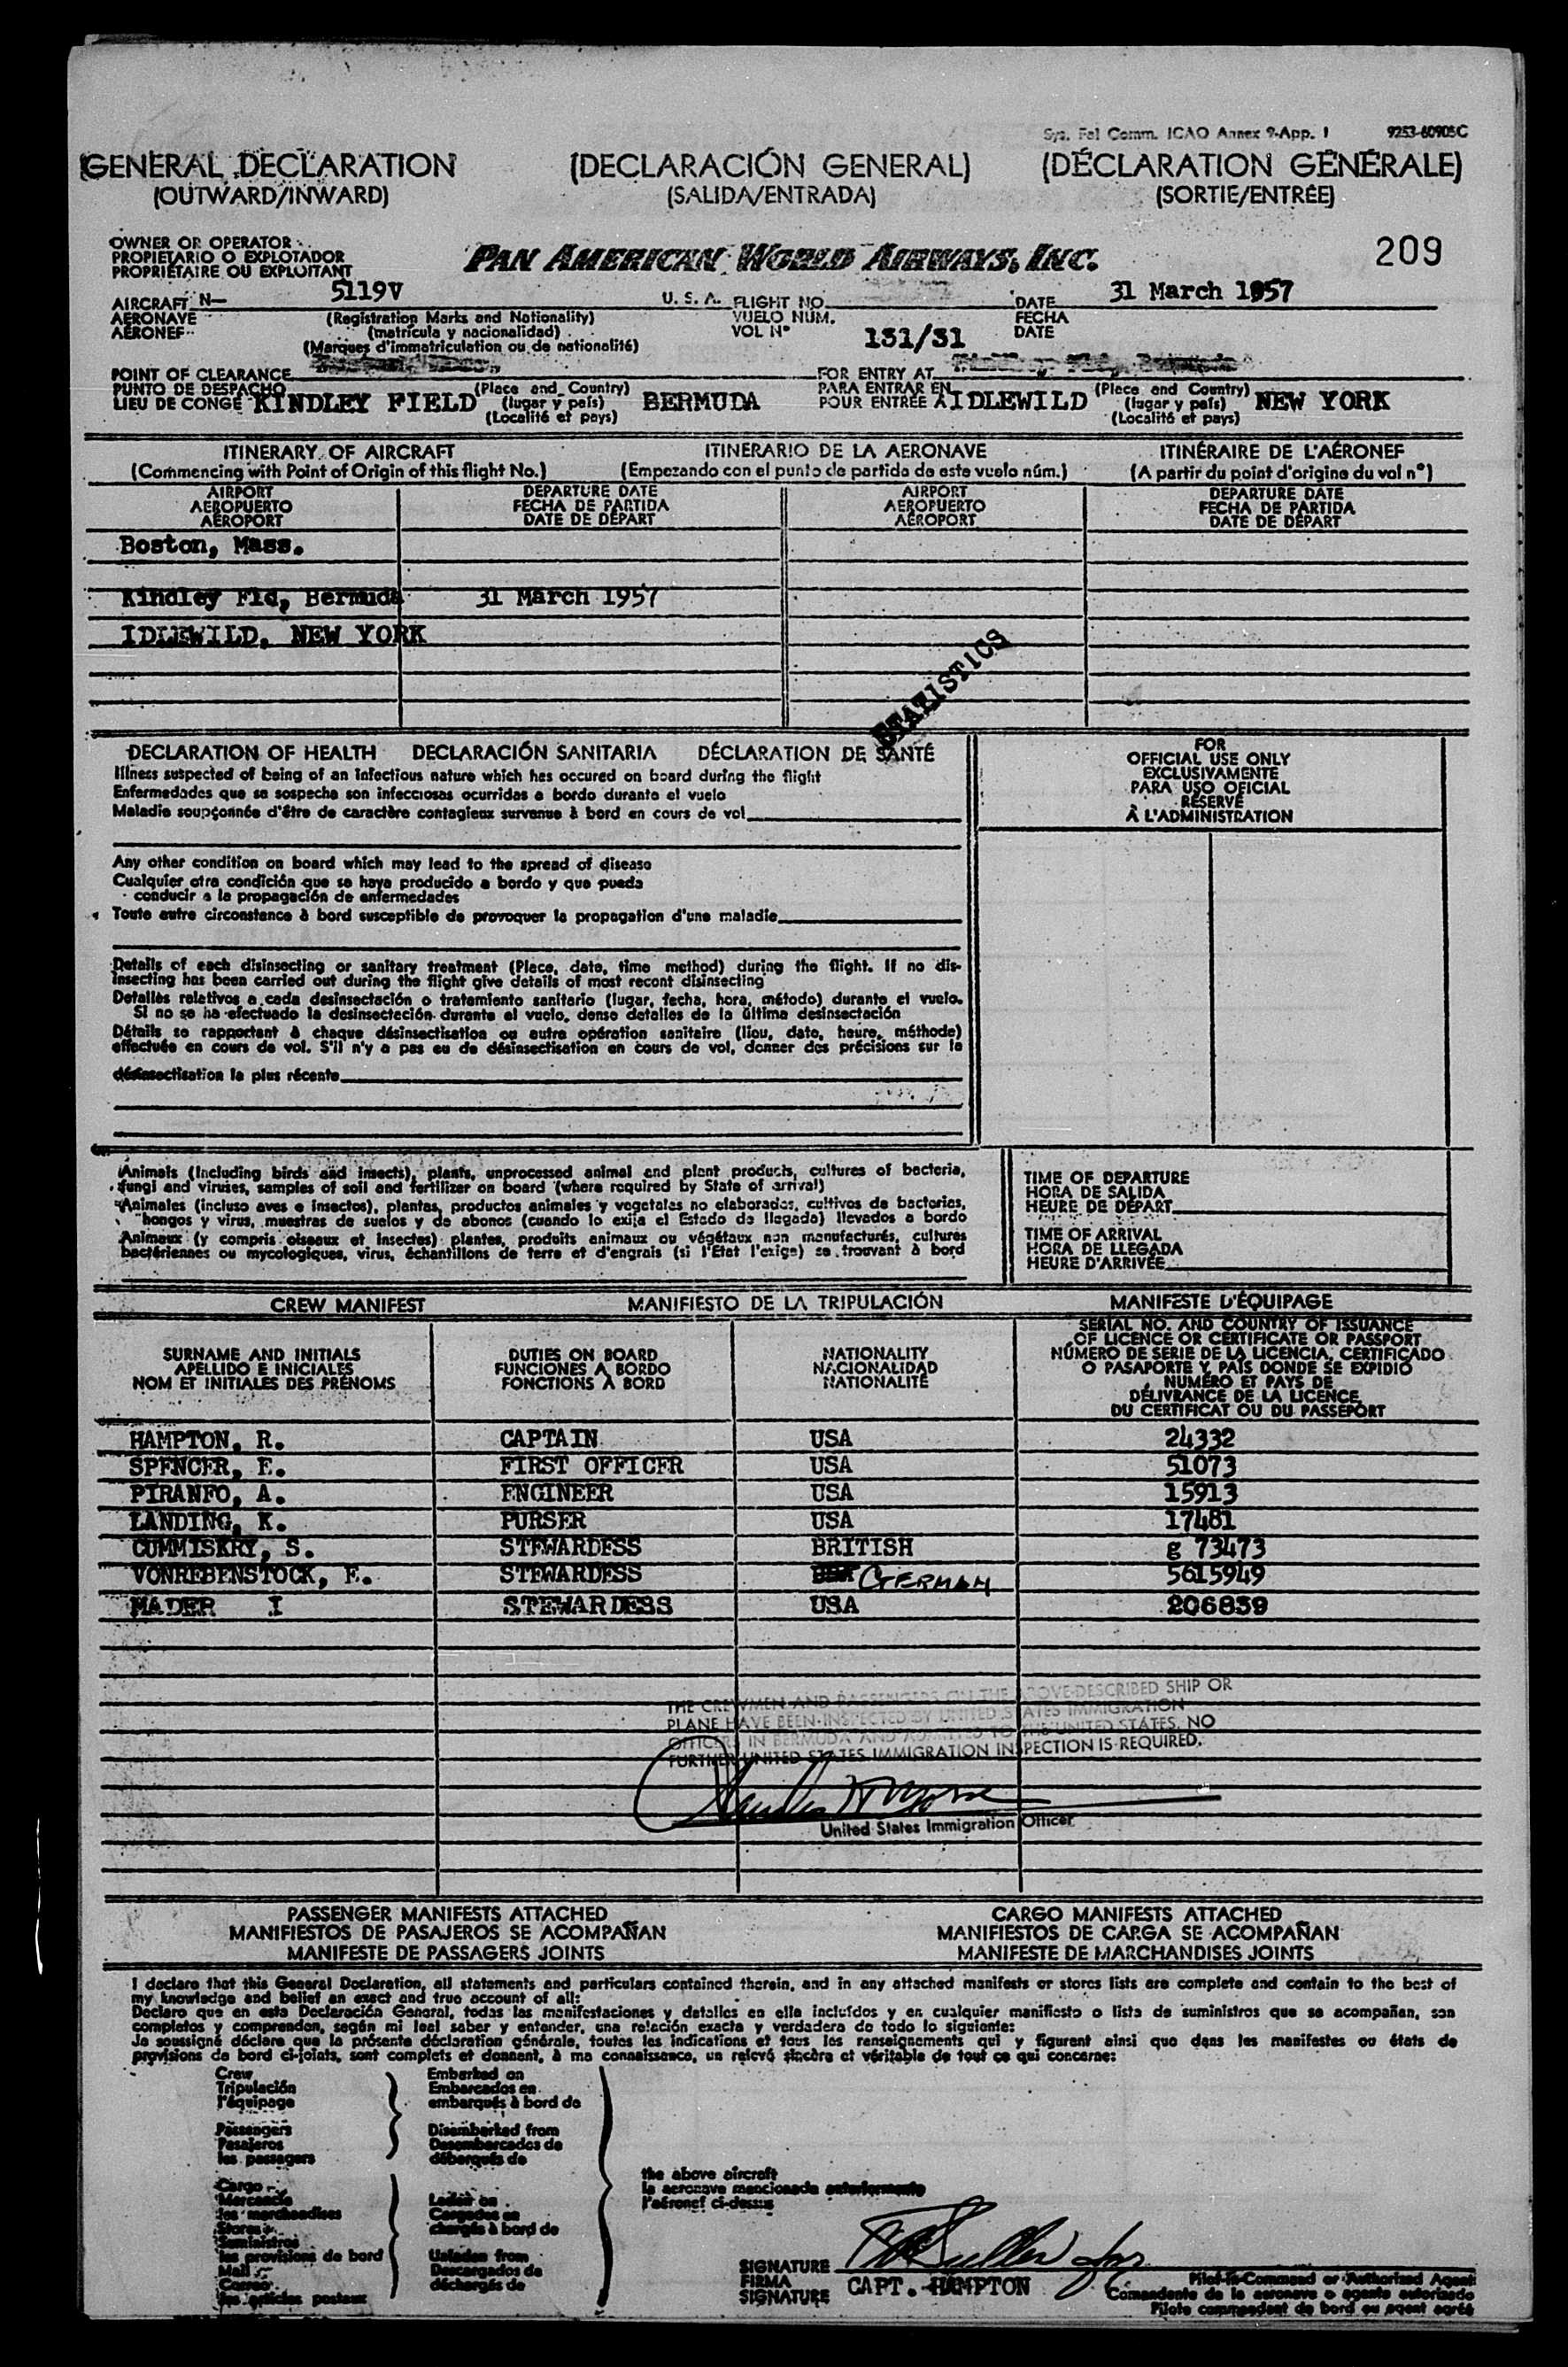 Sys. Fal Comm. ICAO Annex 9-App. 1 9253-60905C
GENERAL DECLARATION (DECLARACIÓN GENERAL) (DÉCLARATION GÉNÉRALE)
(OUTWARD/INWARD) (SALIDA/ENTRADA) (SORTIE/ENTRÉE)
OWNER OR OPERATOR
PROPIETARIO O EXPLOTADOR
PROPRIÉTAIRE OU EXPLOITANT
PAN AMERICAN WORLD AIRWAYS, INC. 209
AIRCRAFT N— 5119V U. S. A. FLIGHT NO. DATE 31 March 1957
AERONAVE (Registration Marks and Nationality) VUELO NUM. FECHA
AÉRONEF (matrícula y nacionalidad) VOL Nº 131/31 DATE
(Marques d'immatriculation ou de nationalité)
POINT OF CLEARANCE FOR ENTRY AT
PUNTO DE DESPACHO (Place and Country) PARA ENTRAR EN (Place and Country)
LIEU DE CONGÉ KINDLEY FIELD (lugar y país) BERMUDA POUR ENTRÉE A IDLEWILD (lugar y país) NEW YORK
(Localité et pays) (Localité et pays)
ITINERARY OF AIRCRAFT ITINERARIO DE LA AERONAVE ITINÉRAIRE DE L'AÉRONEF
(Commencing with Point of Origin of this flight No.) (Empezando con el punto de partida de este vuelo núm.) (A partir du point d'origine du vol nº)
AIRPORT DEPARTURE DATE AIRPORT DEPARTURE DATE
AEROPUERTO FECHA DE PARTIDA AEROPUERTO FECHA DE PARTIDA
AÉROPORT DATE DE DÉPART AÉROPORT DATE DE DÉPART
Boston, Mass.
Kindley Fld, Bermuda 31 March 1957
IDLEWILD, NEW YORK
STATISTICS
DECLARATION OF HEALTH DECLARACIÓN SANITARIA DÉCLARATION DE SANTÉ
Illness suspected of being of an infectious nature which has occured on board during the flight
Enfermedades que se sospecha son infecciosas ocurridas a bordo durante el vuelo
Maladie soupçonnée d'être de caractère contagieux survenue à bord en cours de vol
FOR
OFFICIAL USE ONLY
EXCLUSIVAMENTE
PARA USO OFICIAL
RÉSERVÉ
À L'ADMINISTRATION
Any other condition on board which may lead to the spread of disease
Cualquier otra condición que se haya producido a bordo y que pueda
conducir a la propagación de enfermedades
Toute autre circonstance à bord susceptible de provoquer la propagation d'une maladie
Details of each disinsecting or sanitary treatment (Place, date, time method) during the flight. If no dis-
insecting has been carried out during the flight give details of most recent disinsecting
Detalles relativos a cada desinsectación o tratamiento sanitario (lugar, fecha, hora, método) durante el vuelo.
Si no se ha efectuado la desinsectación durante el vuelo, dense detalles de la última desinsectación
Détails se rapportant à chaque désinsectisation ou autre opération sanitaire (lieu, date, heure, méthode)
effectuée en cours de vol. S'il n'y a pas eu de désinsectisation en cours de vol, donner des précisions sur la
désinsectisation la plus récente
Animals (including birds and insects), plants, unprocessed animal and plant products, cultures of bacteria,
fungi and viruses, samples of soil and fertilizer on board (where required by State of arrival)
Animales (incluso aves e insectos), plantas, productos animales y vegetales no elaborados, cultivos de bacterias,
hongos y virus, muestras de suelos y de abonos (cuando lo exija el Estado de llegada) llevados a bordo
Animaux (y compris oiseaux et insectes) plantes, produits animaux ou végétaux non manufacturés, cultures
bactériennes ou mycologiques, virus, échantillons de terre et d'engrais (si l'Etat l'exige) se trouvant à bord
TIME OF DEPARTURE
HORA DE SALIDA
HEURE DE DÉPART
TIME OF ARRIVAL
HORA DE LLEGADA
HEURE D'ARRIVÉE
CREW MANIFEST MANIFIESTO DE LA TRIPULACIÓN MANIFESTE D'ÉQUIPAGE
SURNAME AND INITIALS
APELLIDO E INICIALES
NOM ET INITIALES DES PRÉNOMS
DUTIES ON BOARD
FUNCIONES A BORDO
FONCTIONS À BORD
NATIONALITY
NACIONALIDAD
NATIONALITÉ
SERIAL NO. AND COUNTRY OF ISSUANCE
OF LICENCE OR CERTIFICATE OR PASSPORT
NÚMERO DE SERIE DE LA LICENCIA, CERTIFICADO
O PASAPORTE Y PAÍS DONDE SE EXPIDIÓ
NUMÉRO ET PAYS DE
DÉLIVRANCE DE LA LICENCE
DU CERTIFICAT OU DU PASSEPORT
HAMPTON, R. CAPTAIN USA 24332
SPENCER, E. FIRST OFFICER USA 51073
PIRANEO, A. ENGINEER USA 15913
LANDING, K. PURSER USA 17481
CUMMISKRY, S. STEWARDESS BRITISH g 73473
VONREBENSTOCK, E. STEWARDESS GERMAN 5615949
MADER I STEWARDESS USA 206839
THE CREWMEN AND PASSENGERS ON THE ABOVE-DESCRIBED SHIP OR
PLANE HAVE BEEN INSPECTED BY UNITED STATES IMMIGRATION
OFFICERS IN BERMUDA AND ADMITTED TO THE UNITED STATES. NO
FURTHER UNITED STATES IMMIGRATION INSPECTION IS REQUIRED.
United States Immigration Officer
PASSENGER MANIFESTS ATTACHED CARGO MANIFESTS ATTACHED
MANIFIESTOS DE PASAJEROS SE ACOMPAÑAN MANIFIESTOS DE CARGA SE ACOMPAÑAN
MANIFESTE DE PASSAGERS JOINTS MANIFESTE DE MARCHANDISES JOINTS
I declare that this General Declaration, all statements and particulars contained therein, and in any attached manifests or stores lists are complete and contain to the best of
my knowledge and belief an exact and true account of all:
Declaro que en esta Declaración General, todas las manifestaciones y detalles en ella incluídos y en cualquier manifiesto o lista de suministros que se acompañan, son
completos y comprenden, según mi leal saber y entender, una relación exacta y verdadera de todo lo siguiente:
Je soussigné déclare que la présente déclaration générale, toutes les indications et tous les renseignements qui y figurent ainsi que dans les manifestes ou états de
provisions de bord ci-joints, sont complets et donnent, à ma connaissance, un relevé sincère et véritable de tout ce qui concerne:
Crew Embarked on
Tripulación Embarcados en
l'équipage embarqués à bord de
Passengers Disembarked from
Pasajeros Desembarcados de
les passagers débarqués de
the above aircraft
la aeronave mencionada anteriormente
l'aéronef ci-dessus
Cargo
Mercancía Laden on
les marchandises Cargados en
Stores chargés à bord de
Suministros
les provisions de bord Unladen from
Mail Descargados de
Correo déchargés de
les articles postaux
SIGNATURE
FIRMA CAPT. HAMPTON
SIGNATURE
Pilot-in-Command or Authorized Agent
Comandante de la aeronave o agente autorizado
Pilote commandant de bord ou agent agréé